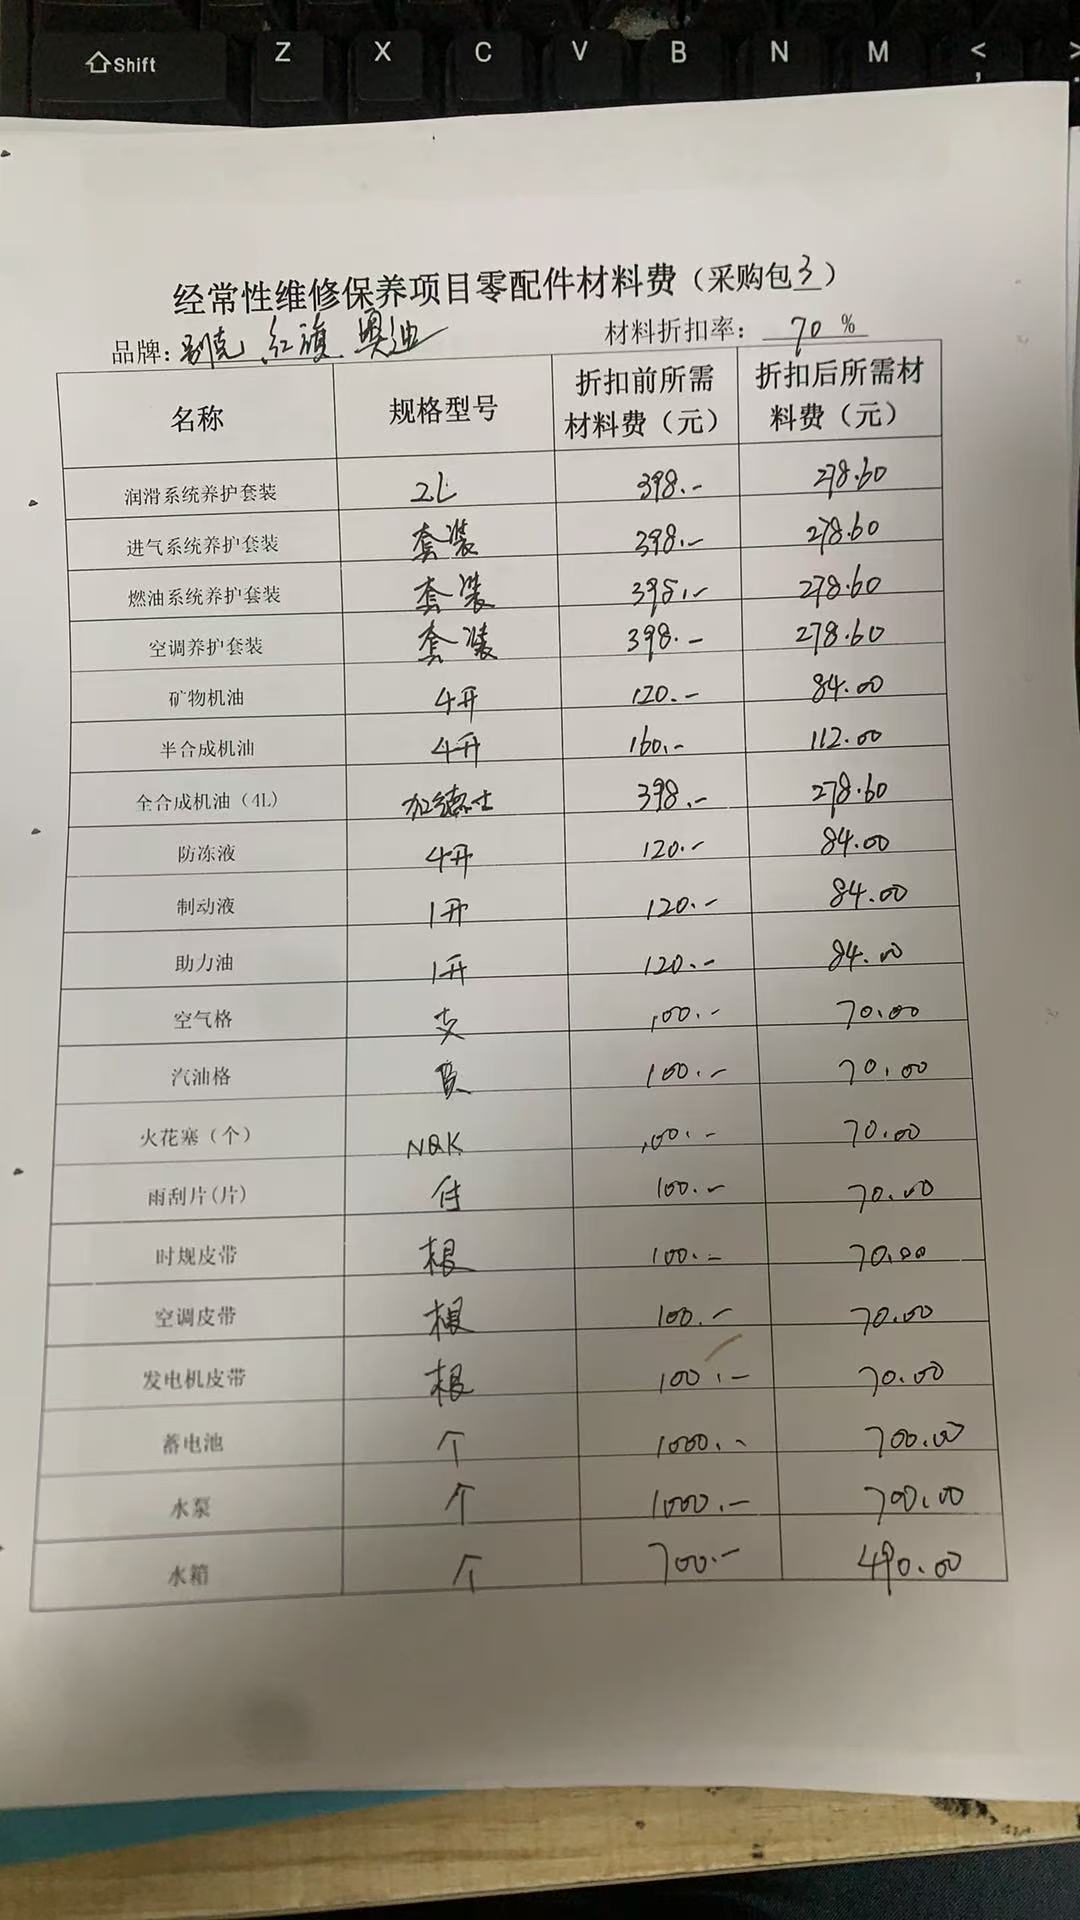 Shift Z X C V B N M < ,
经常性维修保养项目零配件材料费（采购包3）
品牌：别克 红旗 奥迪 材料折扣率：70 %
名称 规格型号 折扣前所需材料费（元） 折扣后所需材料费（元）
润滑系统养护套装 2L 398.- 278.60
进气系统养护套装 套装 398.- 278.60
燃油系统养护套装 套装 398.- 278.60
空调养护套装 套装 398.- 278.60
矿物机油 4升 120.- 84.00
半合成机油 4升 160.- 112.00
全合成机油（4L） 加德士 398.- 278.60
防冻液 4升 120.- 84.00
制动液 1升 120.- 84.00
助力油 1升 120.- 84.00
空气格 支 100.- 70.00
汽油格 100.- 70.00
火花塞（个） NGK 100.- 70.00
雨刮片(片) 付 100.- 70.00
时规皮带 根 100.- 70.00
空调皮带 根 100.- 70.00
发电机皮带 根 100.- 70.00
蓄电池 个 1000.- 700.00
水泵 个 1000.- 700.00
水箱 个 700.- 490.00